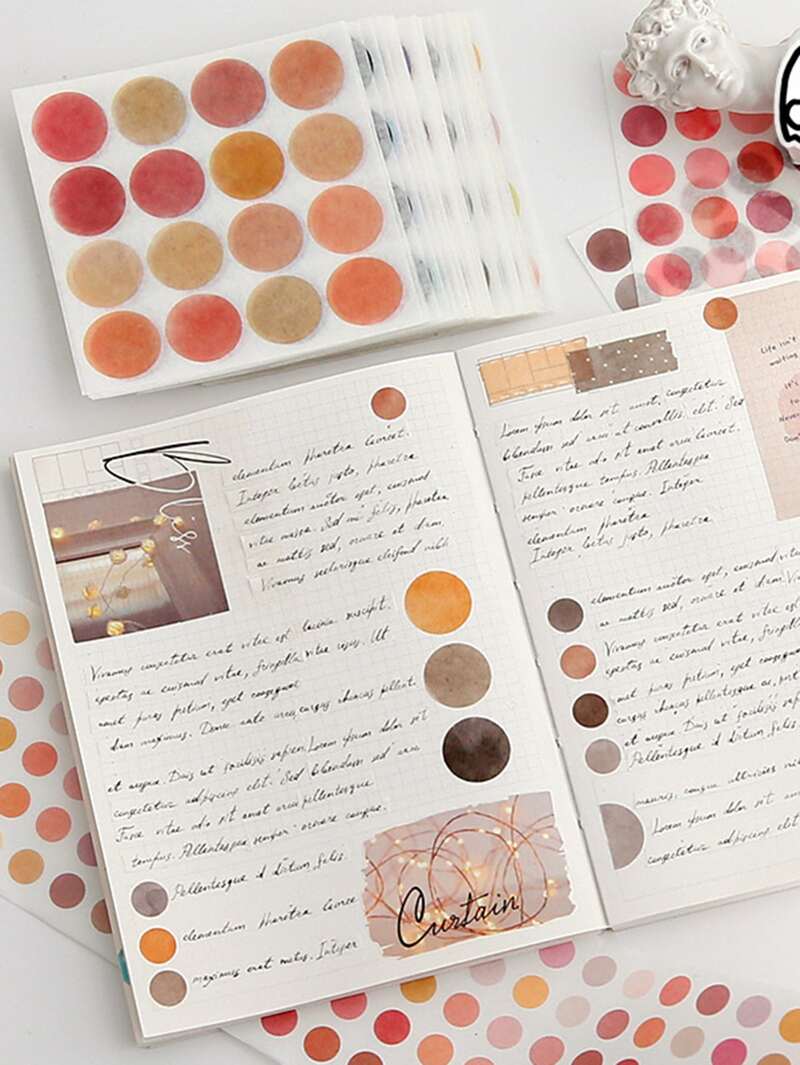 elementum pharetra laoreet.
Integer lectus justo, pharetra
elementum auctor eget, euismod
vitae massa. Sed mi felis, pharetra
ac mattis sed, ornare et diam.
Vivamus scelerisque eleifend nibh
Vivamus consectetur erat vitae est lacinia suscipit.
egestas ac euismod vitae, fringilla vitae risus. Ut
amet purus pretium, eget consequat
diam maximus. Donec ante arcu, cursus rhoncus pellent
et neque. Duis ut facilisis sapien. Lorem ipsum dolor sit
consectetur adipiscing elit. Sed bibendum sed arcu
Fusce vitae odio sit amet arcu pellentesque.
tempus. Pellentesque semper ornare congue.
Pellentesque id dictum felis.
elementum pharetra laoree
maximus erat metus. Integer
Curtain
Lorem ipsum dolor sit amet, consectetur
bibendum sed arcu ut convallis elit. Sed
Fusce vitae odio sit amet arcu laoreet.
pellentesque tempus. Pellentesque
semper ornare congue. Integer
elementum pharetra
Integer lectus justo, pharetra.
elementum auctor eget, euismod vitae
ac mattis sed, ornare et diam.
Vivamus consectetur erat vitae
egestas ac euismod vitae, fringilla
amet purus pretium, eget consequat
cursus rhoncus pellentesque ac,
et neque. Duis ut facilisis sapien
Pellentesque id dictum felis.
mauris, congue ultricies
Lorem ipsum dolor sit amet
consectetur adipiscing elit
Life isn't
waiting
It's
to
Never